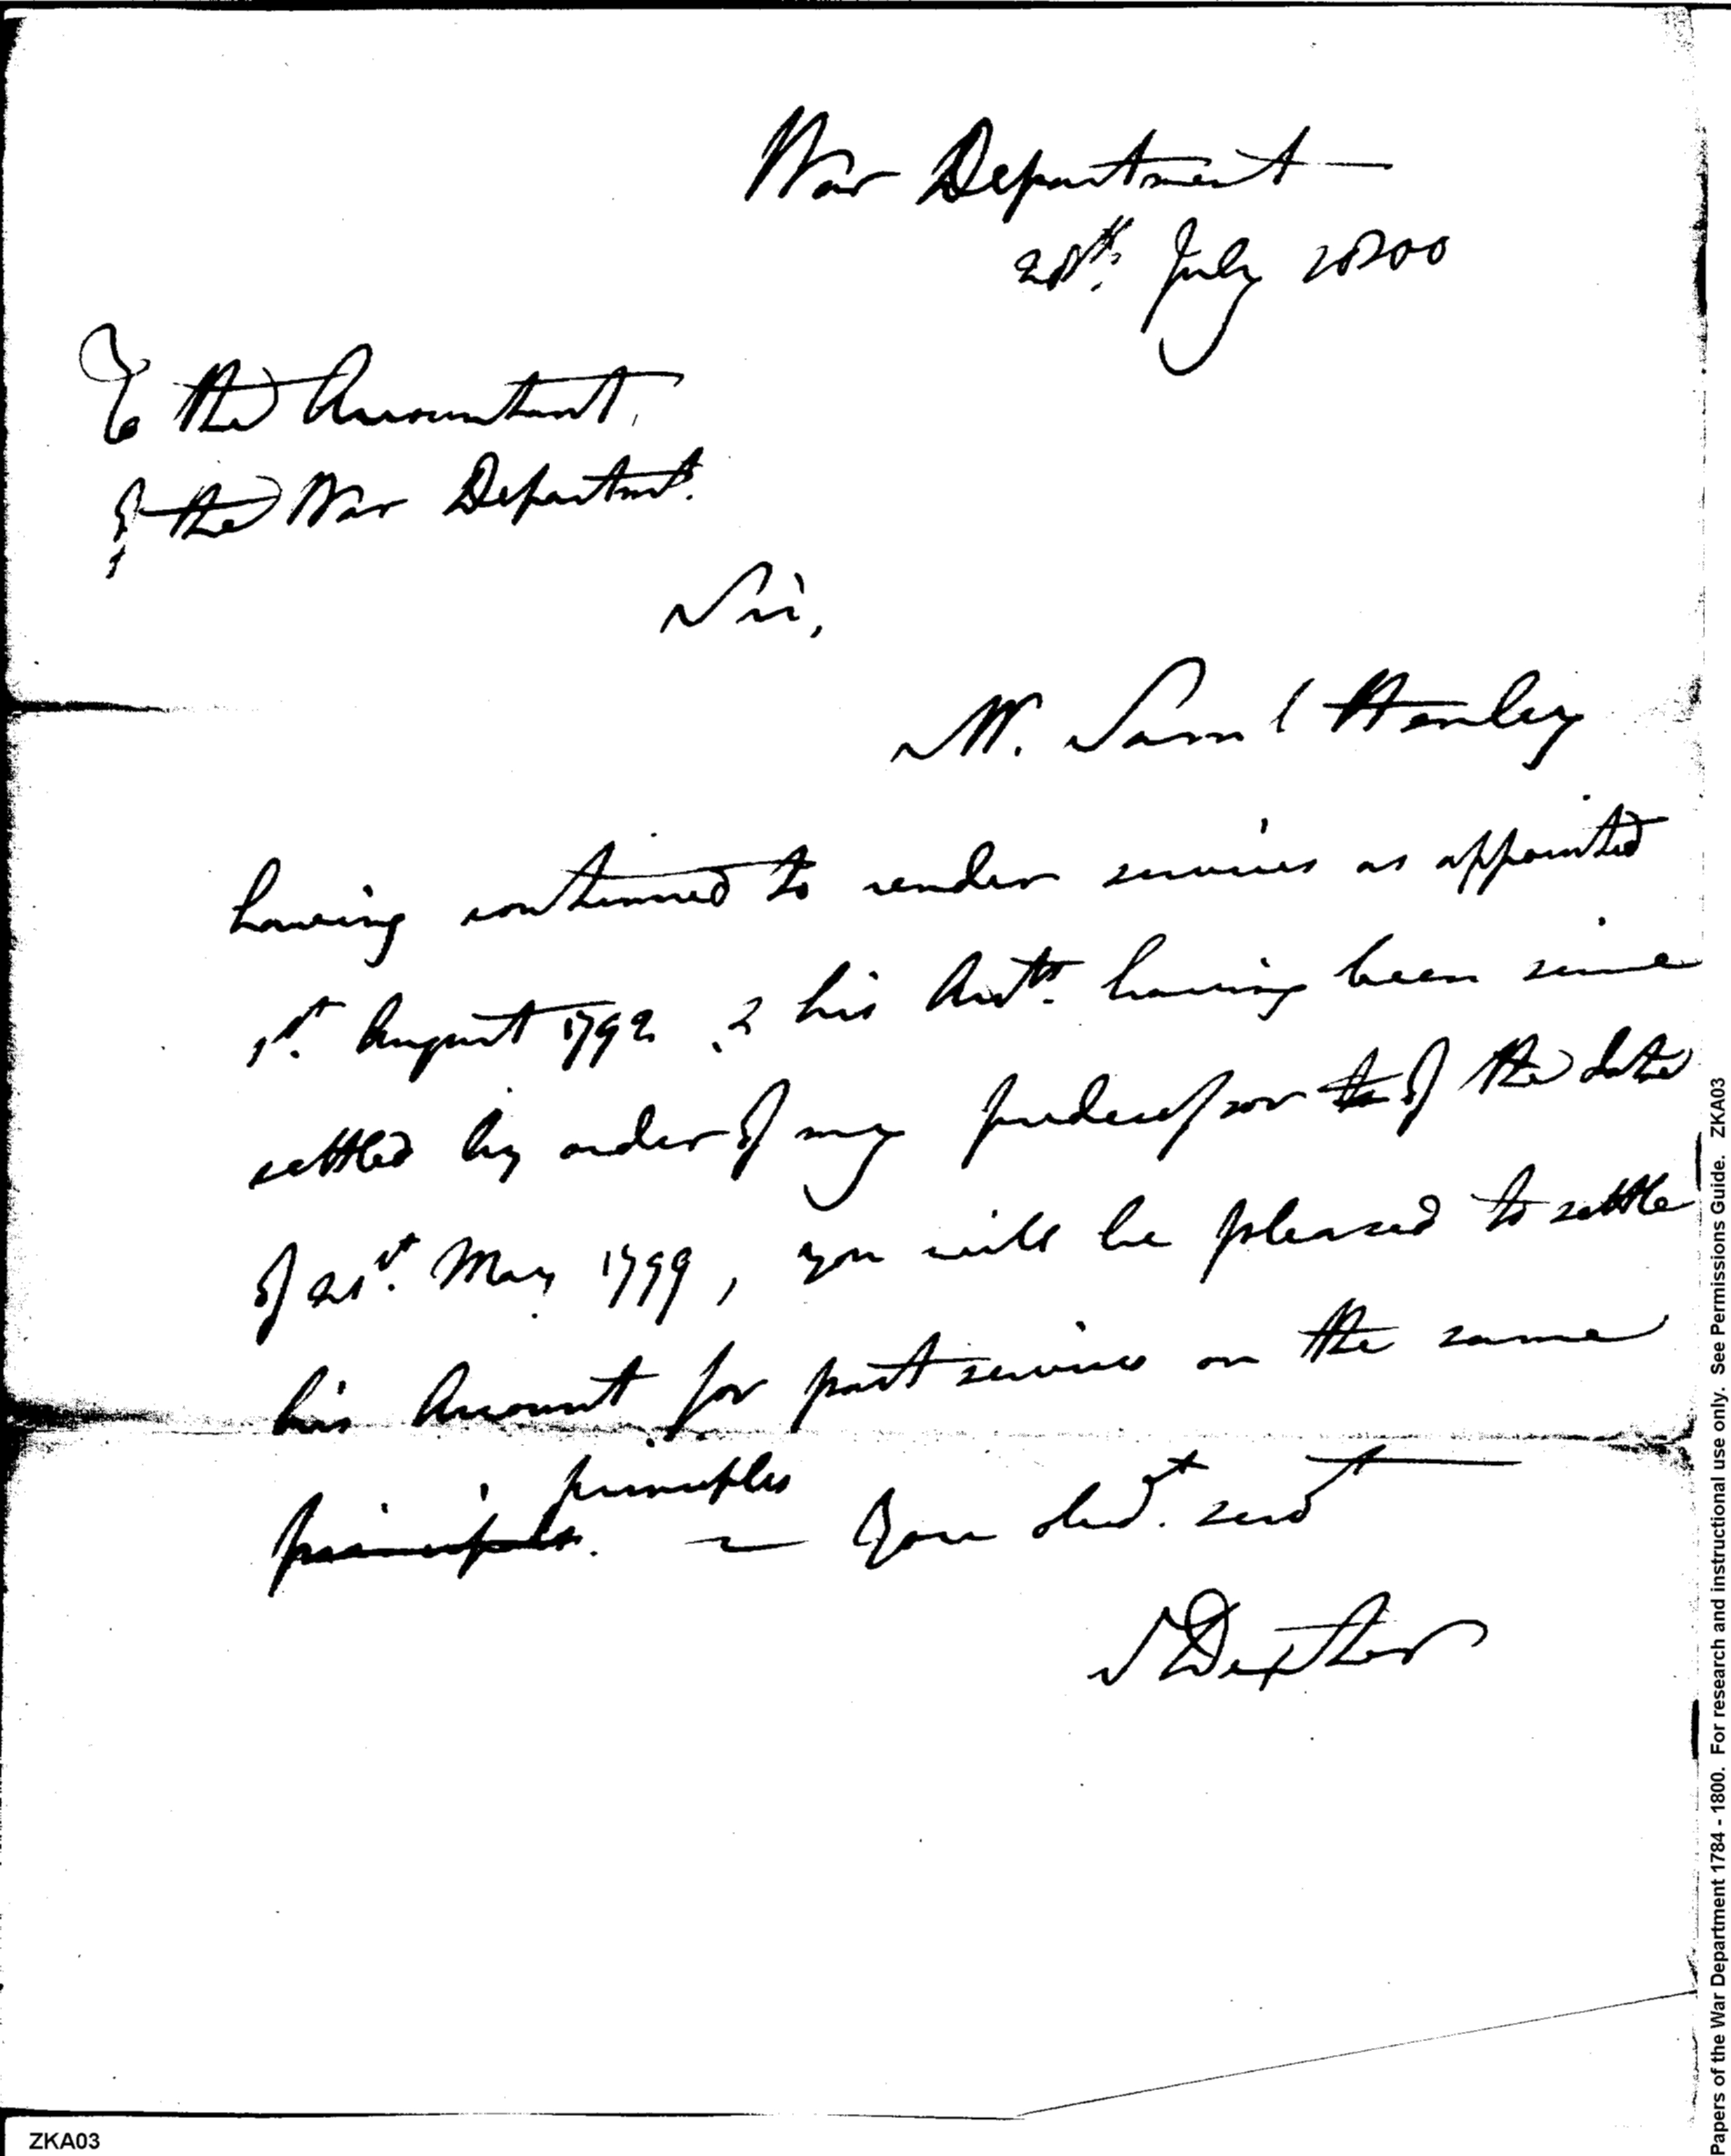 War Department
28th. July 1800
To the Accountant,
of the War Departmt.
Sir,
M. Saml Henley
having continued to render services as appointed
1st. August 1792 & his Acctt. having been since
settled by order of my predecessor to of the date
of 21st. May 1799, you will be pleased to settle
his Account for past services on the same
principles
principles. Your obedt. servt
S Dexter
ZKA03
Papers of the War Department 1784 - 1800. For research and instructional use only. See Permissions Guide. ZKA03